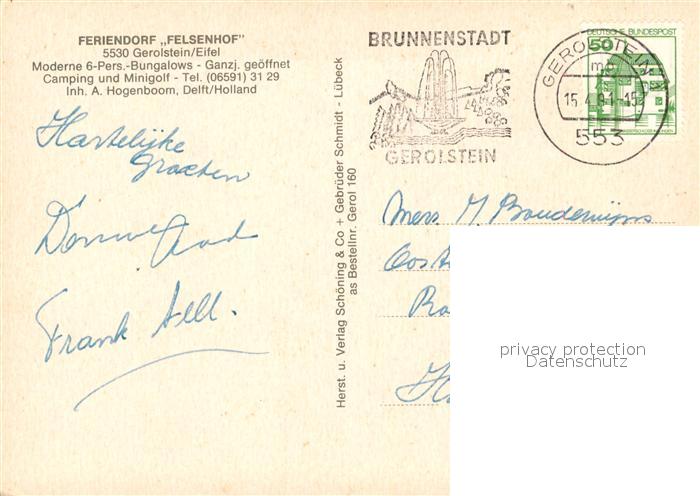 FERIENDORF „FELSENHOF"
5530 Gerolstein/Eifel
Moderne 6-Pers.-Bungalows - Ganzj. geöffnet
Camping und Minigolf - Tel. (06591) 31 29
Inh. A. Hogenboom, Delft/Holland
Hartelijke
Groeten
Frank
Herst. u. Verlag Schöning & Co + Gebrüder Schmidt - Lübeck
as Bestellnr. Gerol 160
BRUNNENSTADT
GEROLSTEIN
GEROLSTEIN
mb
553
DEUTSCHE BUNDESPOST
50
M. Boudewijns
privacy protection
Datenschutz